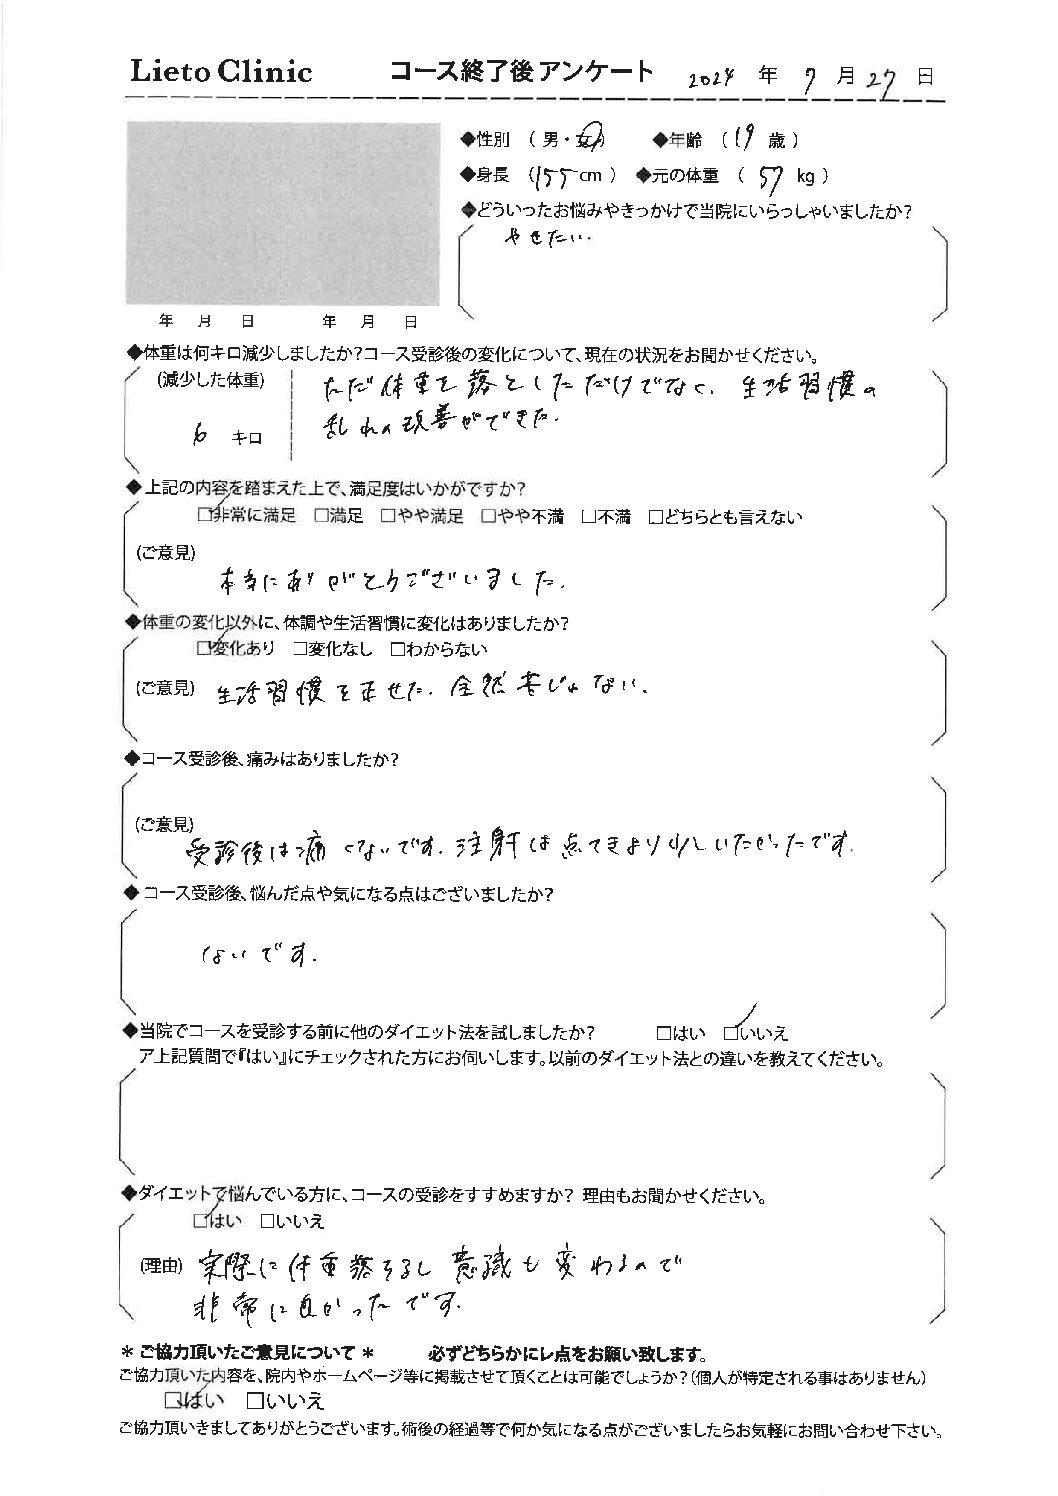 Lieto Clinic コース終了後アンケート 2024 年 7 月 27 日
◆性別 （ 男・女 ） ◆年齢 （ 19 歳 ）
◆身長 （ 155 cm ） ◆元の体重 （ 57 kg ）
◆どういったお悩みやきっかけで当院にいらっしゃいましたか？
やせたい.
年 月 日 年 月 日
◆体重は何キロ減少しましたか？コース受診後の変化について、現在の状況をお聞かせください。
(減少した体重)
6 キロ
ただ体重を落としただけでなく、生活習慣の
乱れの改善ができた.
◆上記の内容を踏まえた上で、満足度はいかがですか？
□非常に満足 □満足 □やや満足 □やや不満 □不満 □どちらとも言えない
(ご意見)
本当にありがとうございました.
◆体重の変化以外に、体調や生活習慣に変化はありましたか？
□変化あり □変化なし □わからない
(ご意見) 生活習慣をませた. 全然苦じゃない.
◆コース受診後、痛みはありましたか？
(ご意見)
受診後は痛くないです. 注射は点てきより少しいたかったです.
◆コース受診後、悩んだ点や気になる点はございましたか？
ないです.
◆当院でコースを受診する前に他のダイエット法を試しましたか？ □はい □いいえ
ア上記質問で『はい』にチェックされた方にお伺いします。以前のダイエット法との違いを教えてください。
◆ダイエットで悩んでいる方に、コースの受診をすすめますか？ 理由もお聞かせください。
□はい □いいえ
(理由) 実際に体重落ちるし意識も変わるので
非常に良かったです.
＊ご協力頂いたご意見について＊ 必ずどちらかにレ点をお願い致します。
ご協力頂いた内容を、院内やホームページ等に掲載させて頂くことは可能でしょうか？（個人が特定される事はありません）
□はい □いいえ
ご協力頂いきましてありがとうございます。術後の経過等で何か気になる点がございましたらお気軽にお問い合わせ下さい。